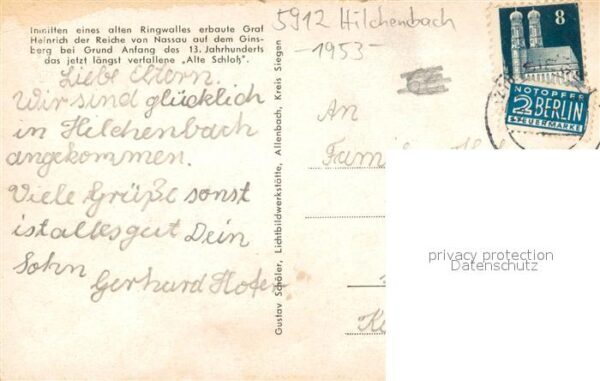 Inmitten eines alten Ringwalles erbaute Graf
Heinrich der Reiche von Nassau auf dem Gins-
berg bei Grund Anfang des 13. Jahrhunderts
das jetzt längst verfallene „Alte Schloß".
Liebe Eltern.
Wir sind glücklich
in Hilchenbach
angekommen.
Viele Grüße sonst
ist alles gut Dein
Sohn
Gerhard Hofer
Gustav Schäfer, Lichtbildwerkstätte, Allenbach, Kreis Siegen
5912 Hilchenbach
-1953-
An
8
NOTOPFER
2 BERLIN
STEUERMARKE
privacy protection
Datenschutz